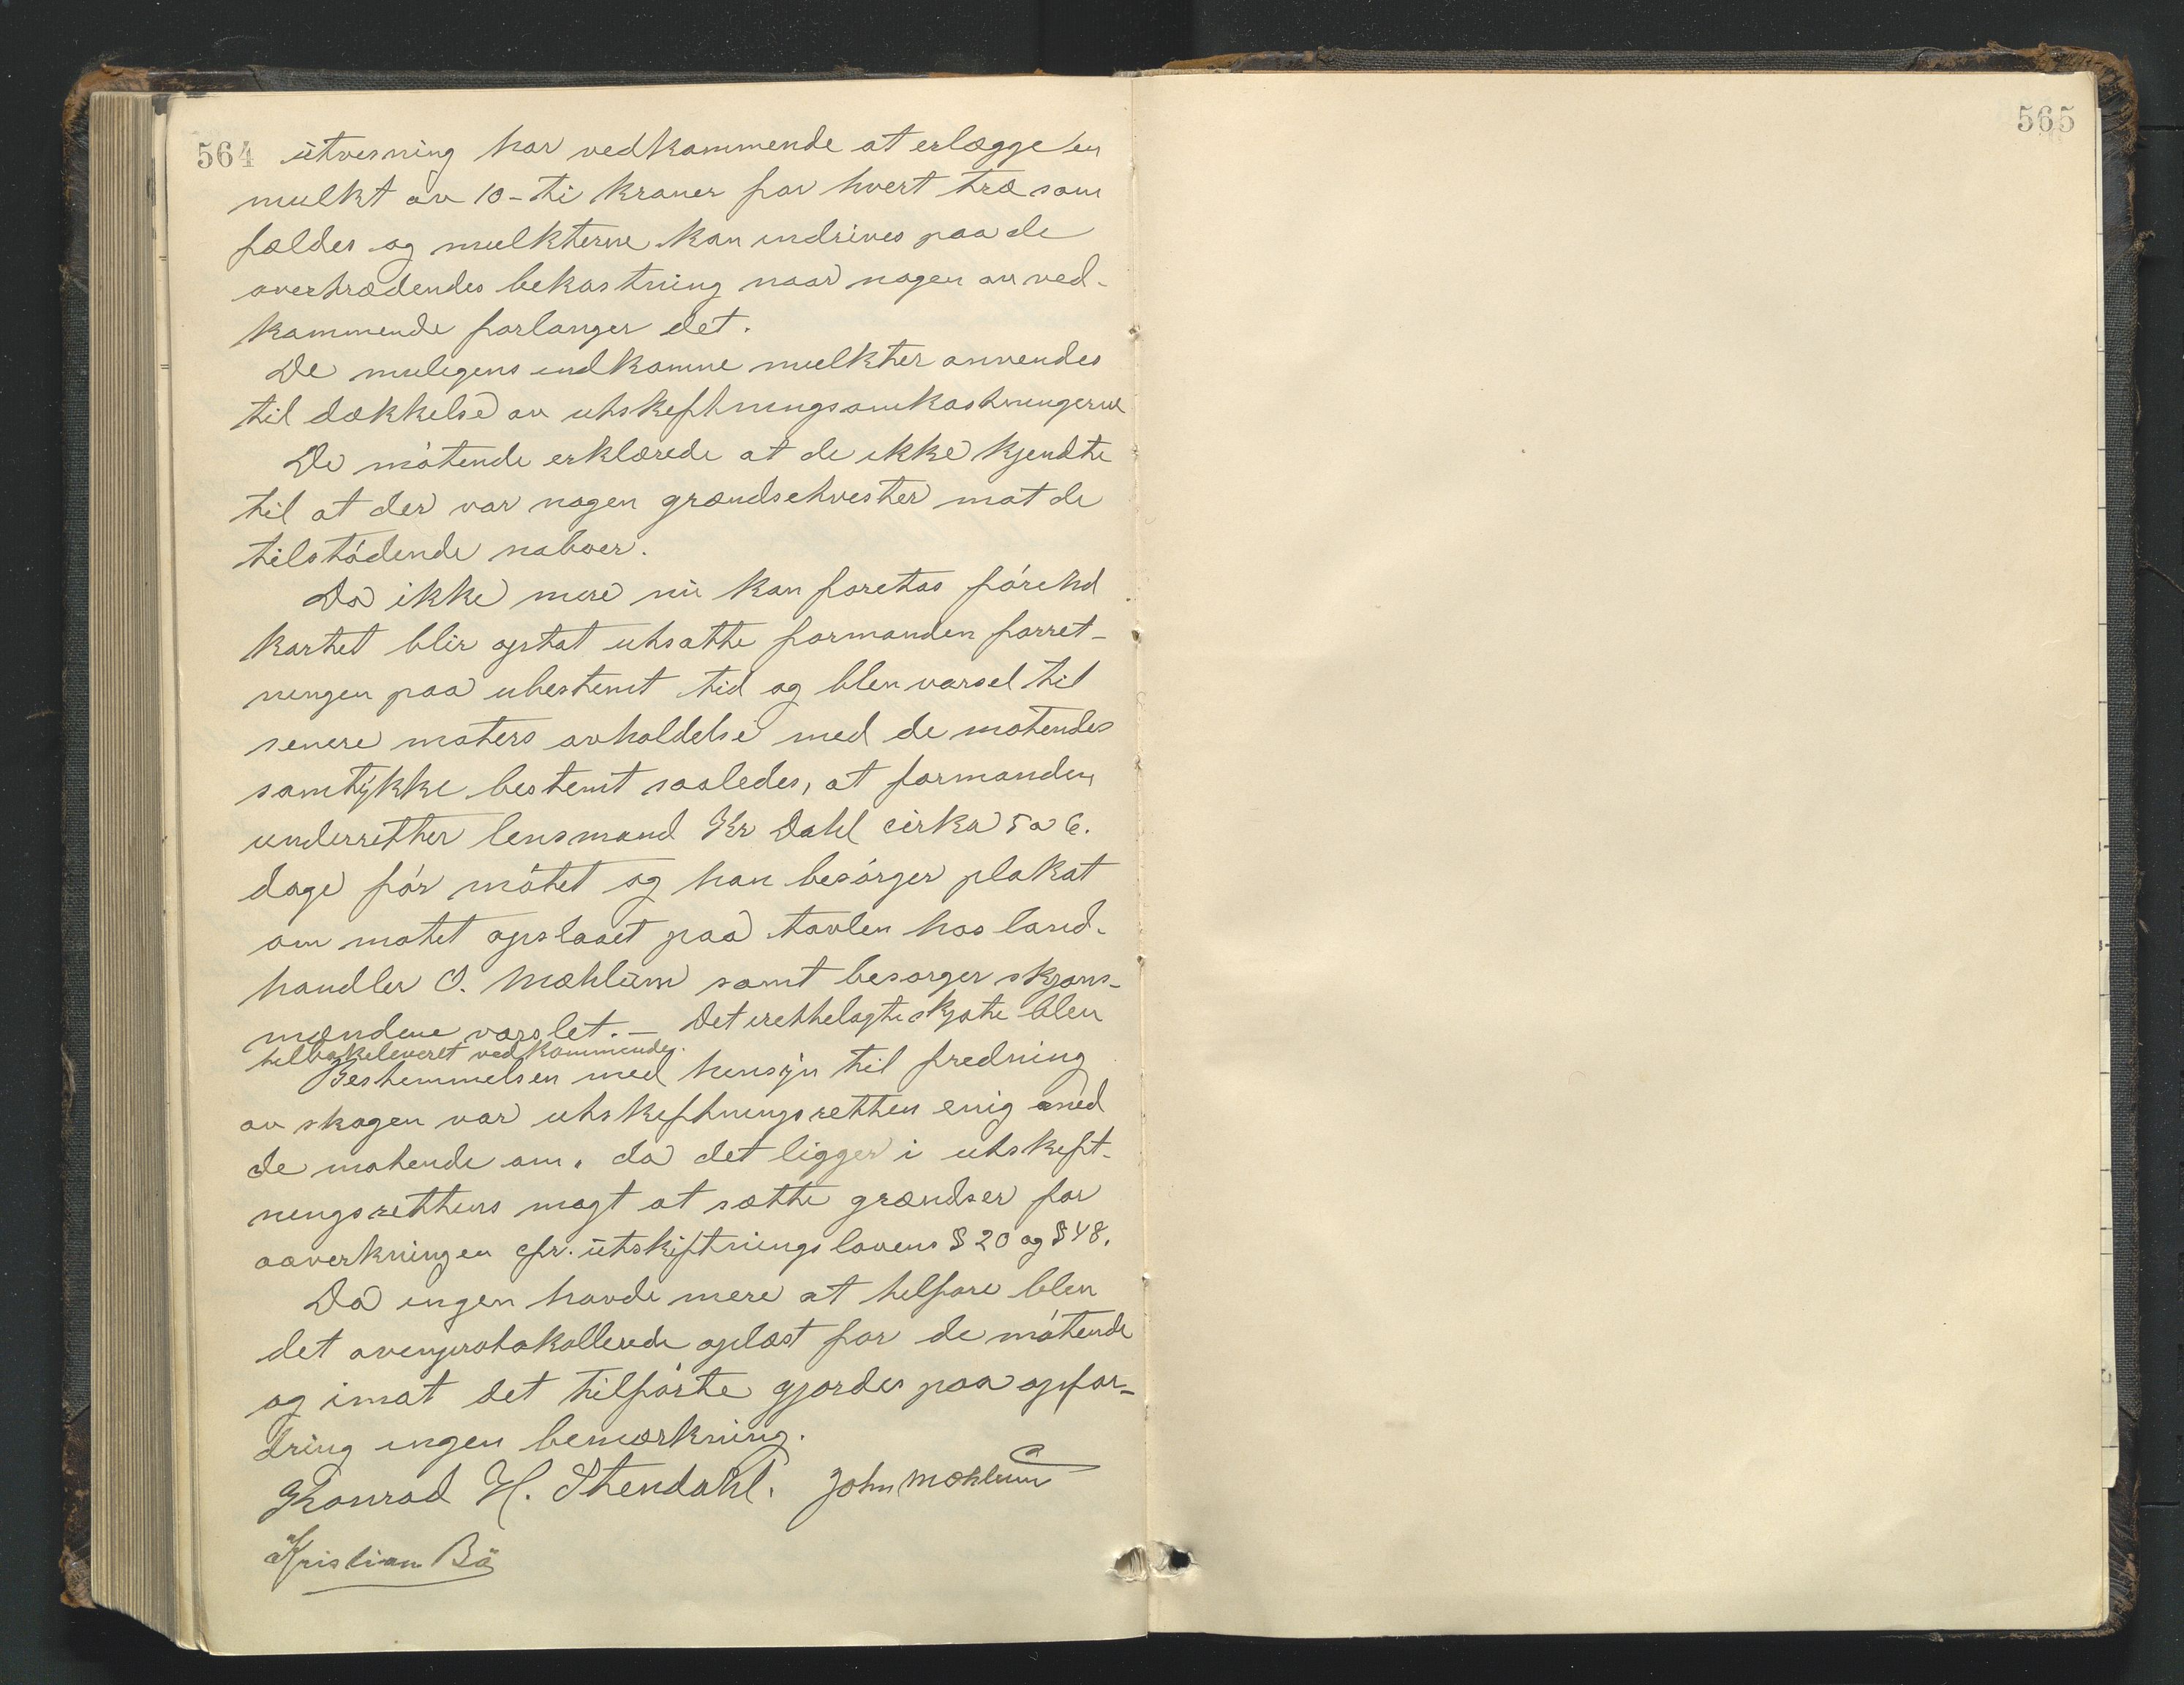 564 utvisning har vedkommende at erlægge en
mulkt av 10 - ti kroner for hvert træ som
fældes og mulkterne kan indrives paa de
overtrædendes bekostning naar nogen av ved-
kommende forlanger det.
De muligens indkomne mulkter anvendes
til dækkelse av utskiftningsomkostningerne
De mötende erklærede at de ikke kjendte
til at der var nogen grændsetvister mot de
tilstödende naboer.
Da ikke mere nu kan foretas förend
kartet blir optat utsatte formanden forret-
ningen paa ubestemt tid og blev varsel til
senere möters avholdelse med de mötendes
samtykke bestemt saaledes, at formanden
underretter lensmand Kr Dahl cirka 5 a 6.
dage för mötet og han besörger plakat
om mötet opslaaet paa tavlen hos land-
handler O. Mæhlum samt besörger skjöns-
mændene varslet. - Det irettelagte skjöte blev
tilbakeleveret vedkommende.
Bestemmelsen med hensyn til fredning
av skogen var utskiftningsretten enig med
de mötende om, da det ligger i utskift-
ningsrettens magt at sætte grændser for
aavirkningen cfr. utskiftningslovens § 20 og § 48.
Da ingen havde mere at tilföre blev
det ovenprotokollerede oplæst for de mötende
og imot det tilförte gjordes paa opfor-
dring ingen bemærkning.
Konrad H. Stendahl. John Mæhlum
Kristian Bö
565